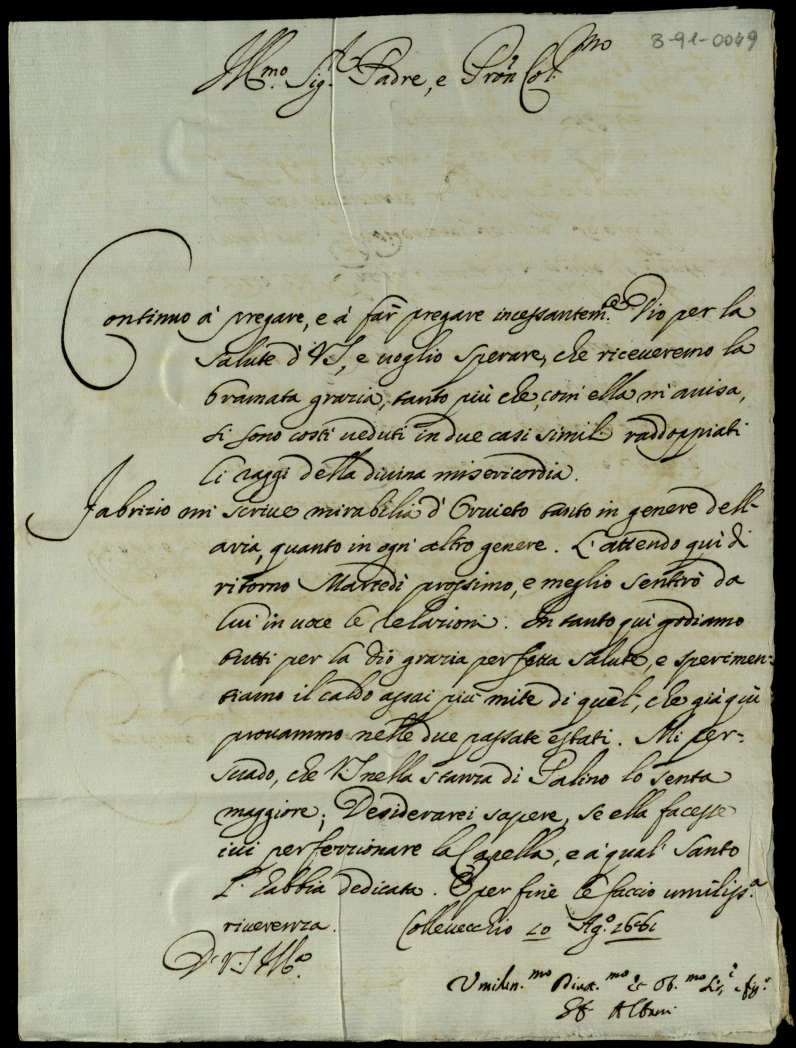 8-91-0049
Ill.mo Sig.r Padre, e Pron Col.mo
Continuo à pregare, e à far pregare incessantem.te Dio per la
salute di VS, e voglio sperare, che riceveremo la
bramata grazia, tanto più che, com'ella m'avisa,
si sono costì veduti in due casi simili raddoppiati
li raggi della divina misericordia.
Fabrizio mi scrive mirabilia d'Orvieto tanto in genere dell'
aria, quanto in ogni altro genere. L'attendo qui di
ritorno Martedì prossimo, e meglio sentirò da
lui in voce le relazioni. In tanto qui godiamo
tutti per la Dio grazia perfetta salute, e sperimen=
tiamo il caldo assai più mite di quel, che già qui
provammo nelle due passate estati. Mi per=
suado, che VS nella stanza di Palino lo senta
maggiore; Desiderarei sapere, se ella facesse
ivi perfezzionare la Capella, e à qual Santo
l'habbia dedicata. E per fine le faccio umiliss.a
riverenza. Collevecchio 10 Ag.o 1661
D. V.S. Ill.a
Umilin.mo Divot.mo et Ob.mo
Albani